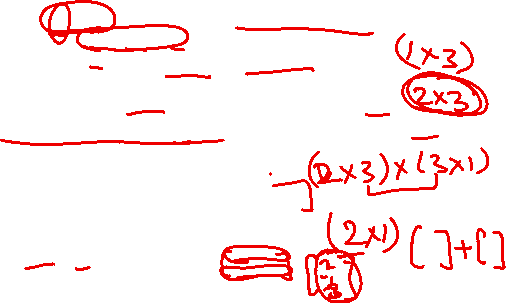 (1×3)
2×3
(2×3)×(3×1)
(2×1) [ ]+[ ]